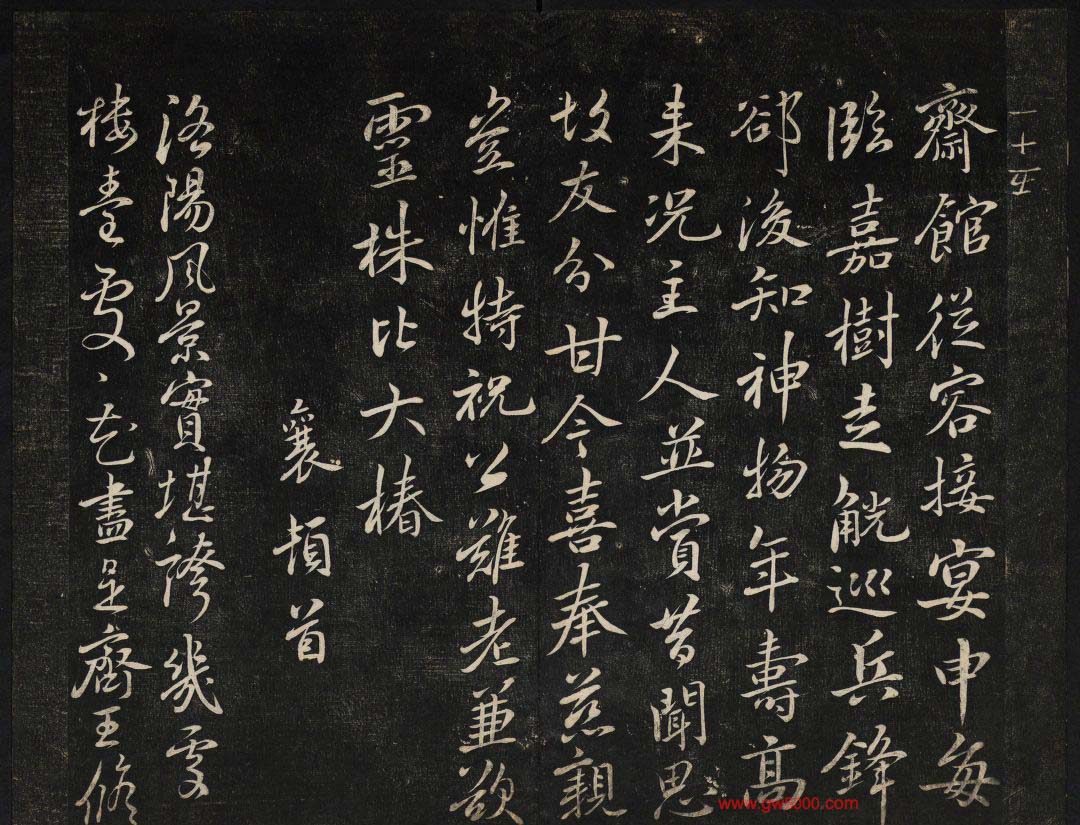 一十五
齋館從容接宴申每
臨嘉樹走觥巡兵鋒
郤後知神物年壽高
来況主人並賞昔聞思
故友分甘今喜奉慈親
豈惟特祝公難老兼欲
靈株比大椿
襄頓首
洛陽風景實堪誇幾處
樓臺處〻花盡是齊王脩
www.gw5000.com